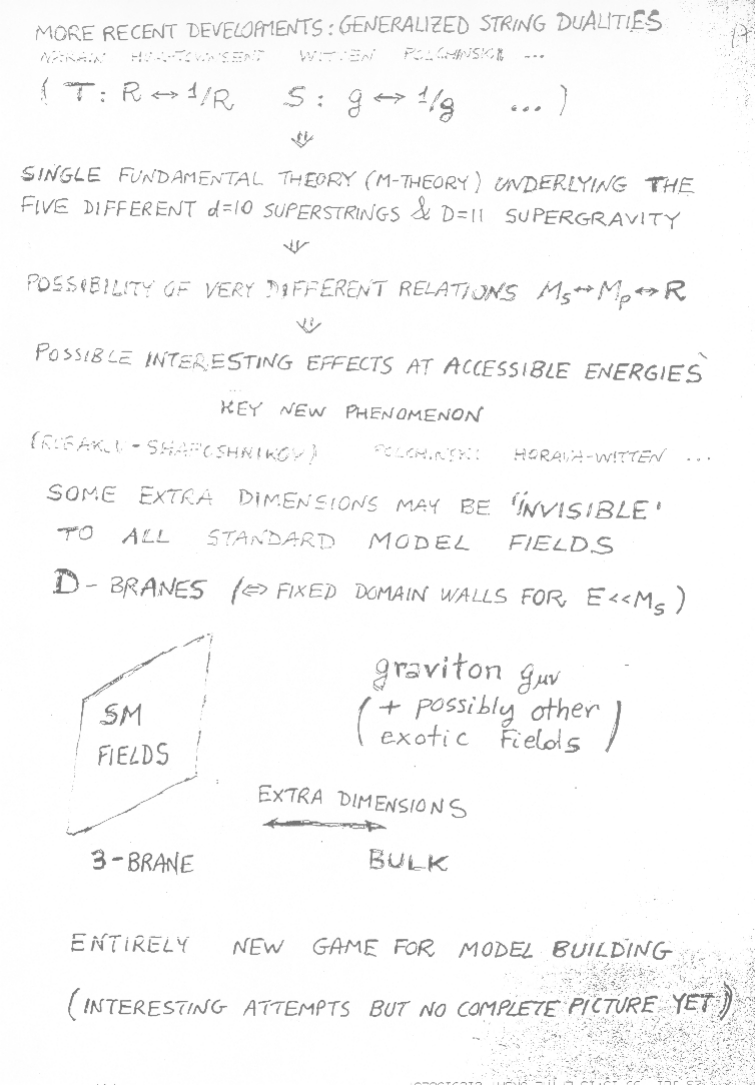 MORE RECENT DEVELOPMENTS: GENERALIZED STRING DUALITIES
NARAIN HULL-TOWNSEND WITTEN POLCHINSKI ...
( T: R ↔ 1/R S: g ↔ 1/g ... )
⇓
SINGLE FUNDAMENTAL THEORY (M-THEORY) UNDERLYING THE
FIVE DIFFERENT d=10 SUPERSTRINGS & D=11 SUPERGRAVITY
⇓
POSSIBILITY OF VERY DIFFERENT RELATIONS Ms ↔ Mp ↔ R
⇓
POSSIBLE INTERESTING EFFECTS AT ACCESSIBLE ENERGIES
KEY NEW PHENOMENON
(RUBAKOV - SHAPOSHNIKOV) POLCHINSKI HORAVA-WITTEN ...
SOME EXTRA DIMENSIONS MAY BE 'INVISIBLE'
TO ALL STANDARD MODEL FIELDS
D-BRANES (⇔ FIXED DOMAIN WALLS FOR E<<Ms)
graviton gμν
(+ possibly other
exotic fields)
SM
FIELDS
EXTRA DIMENSIONS
3-BRANE
BULK
ENTIRELY NEW GAME FOR MODEL BUILDING
(INTERESTING ATTEMPTS BUT NO COMPLETE PICTURE YET)